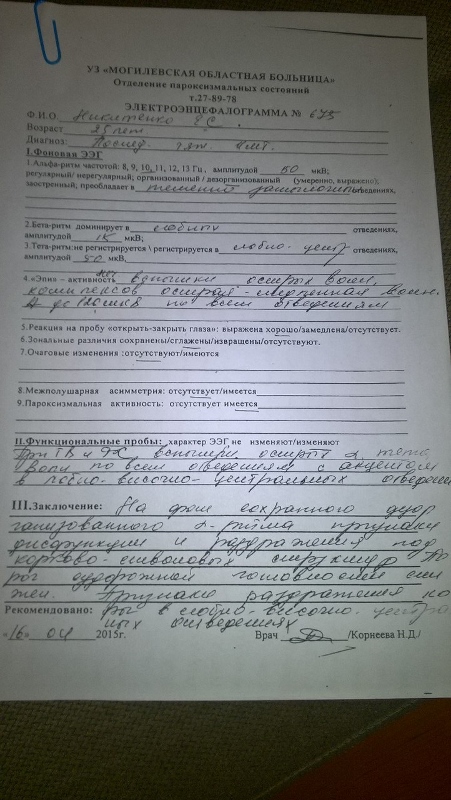 УЗ «МОГИЛЕВСКАЯ ОБЛАСТНАЯ БОЛЬНИЦА»
Отделение пароксизмальных состояний
т.27-89-78
ЭЛЕКТРОЭНЦЕФАЛОГРАММА № 675
Ф.И.О. Никитенко
Возраст лет
Диагноз: Послед. тяж.
I.Фоновая ЭЭГ
1.Альфа-ритм частотой: 8, 9, 10, 11, 12, 13 Гц , амплитудой 50 мкВ;
регулярный/ нерегулярный; организованный / дезорганизованный (умеренно, выражено);
заостренный; преобладает в отведениях,
2.Бета-ритм доминирует в лобных отведениях,
амплитудой 15 мкВ;
3.Тета-ритм:не регистрируется \ регистрируется в лобно- центр отведениях,
амплитудой 50 мкВ,
4.«Эпи» – активность вспышки острых волн,
комплексов острая-медленная волн.
по всем отведениям
5.Реакция на пробу «открыть-закрыть глаза»: выражена хорошо/замедлена/отсутствует.
6.Зональные различия сохранены/сглажены/извращены/отсутствуют.
7.Очаговые изменения :отсутствуют/имеются
8.Межполушарная асимметрия: отсутствует/имеется
9.Пароксизмальная активность: отсутствует имеется
II.Функциональные пробы: характер ЭЭГ не изменяют/изменяют
При ГВ и ФС вспышки острых тета
волн по всем отведениям с акцентом
в лобно-височно-центральных отведен
III.Заключение: На фоне сохранного дезор
ганизованного α-ритма признаки
дисфункции и раздражения под
корково-стволовых структур. По
рог судорожной готовности сни
жен. Признаки раздражения ко
Рекомендовано: ры в лобно-височно- центра
ных отведениях
«16» 04 2015г. Врач /Корнеева Н.Д./